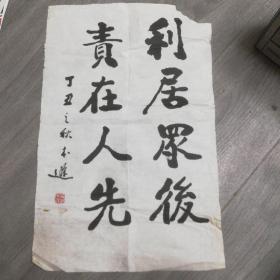 利居眾後
責在人先
丁丑之秋